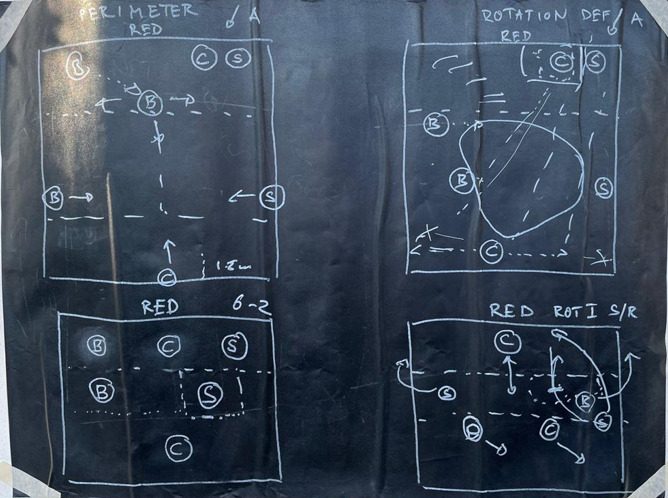 PERIMETER / A
RED
B C S
B
B S
C 1.5m
ROTATION DEF / A
RED
C S
B
B S
C
RED 6-2
B C S
B S
C
RED ROT I S/R
C
S B
S
C